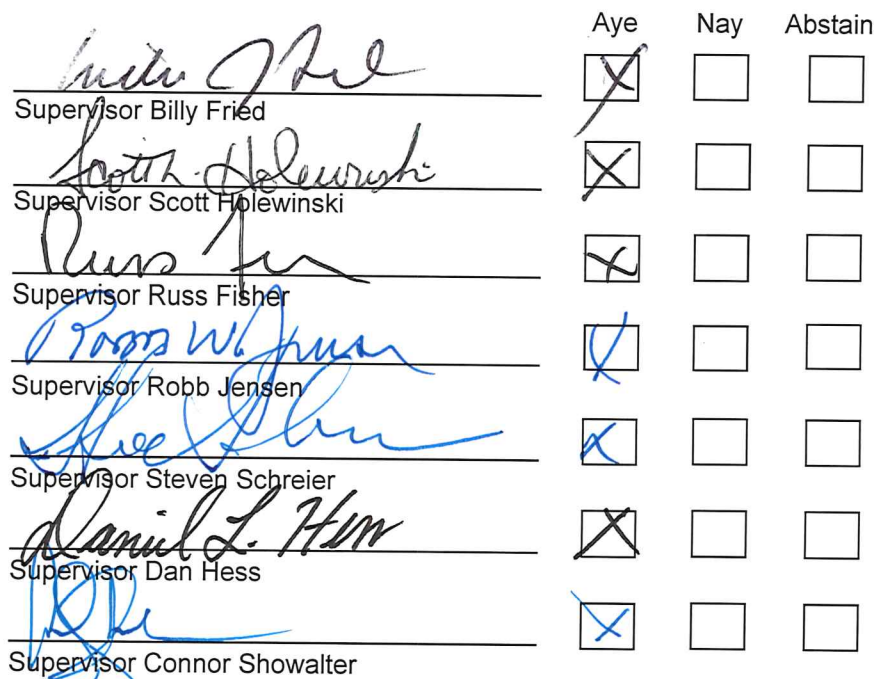 Aye Nay Abstain
Supervisor Billy Fried
Scott h. Holewinski
Supervisor Scott Holewinski
Russ
Supervisor Russ Fisher
Robb W. Jensen
Supervisor Robb Jensen
Supervisor Steven Schreier
Daniel L. Hess
Supervisor Dan Hess
Supervisor Connor Showalter